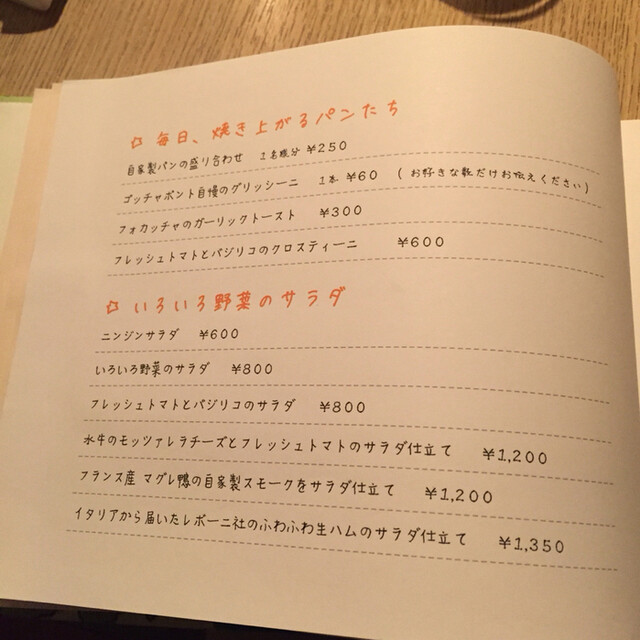 毎日、焼き上がるパンたち
自家製パンの盛り合わせ 1名様分 ¥250
ゴッチャポント自慢のグリッシーニ 1本 ¥60 (お好きな数だけお伝えください)
フォカッチャのガーリックトースト ¥300
フレッシュトマトとバジリコのクロスティーニ ¥600
いろいろ野菜のサラダ
ニンジンサラダ ¥600
いろいろ野菜のサラダ ¥800
フレッシュトマトとバジリコのサラダ ¥800
水牛のモッツァレラチーズとフレッシュトマトのサラダ仕立て ¥1,200
フランス産 マグレ鴨の自家製スモークをサラダ仕立て ¥1,200
イタリアから届いたレボーニ社のふわふわ生ハムのサラダ仕立て ¥1,350